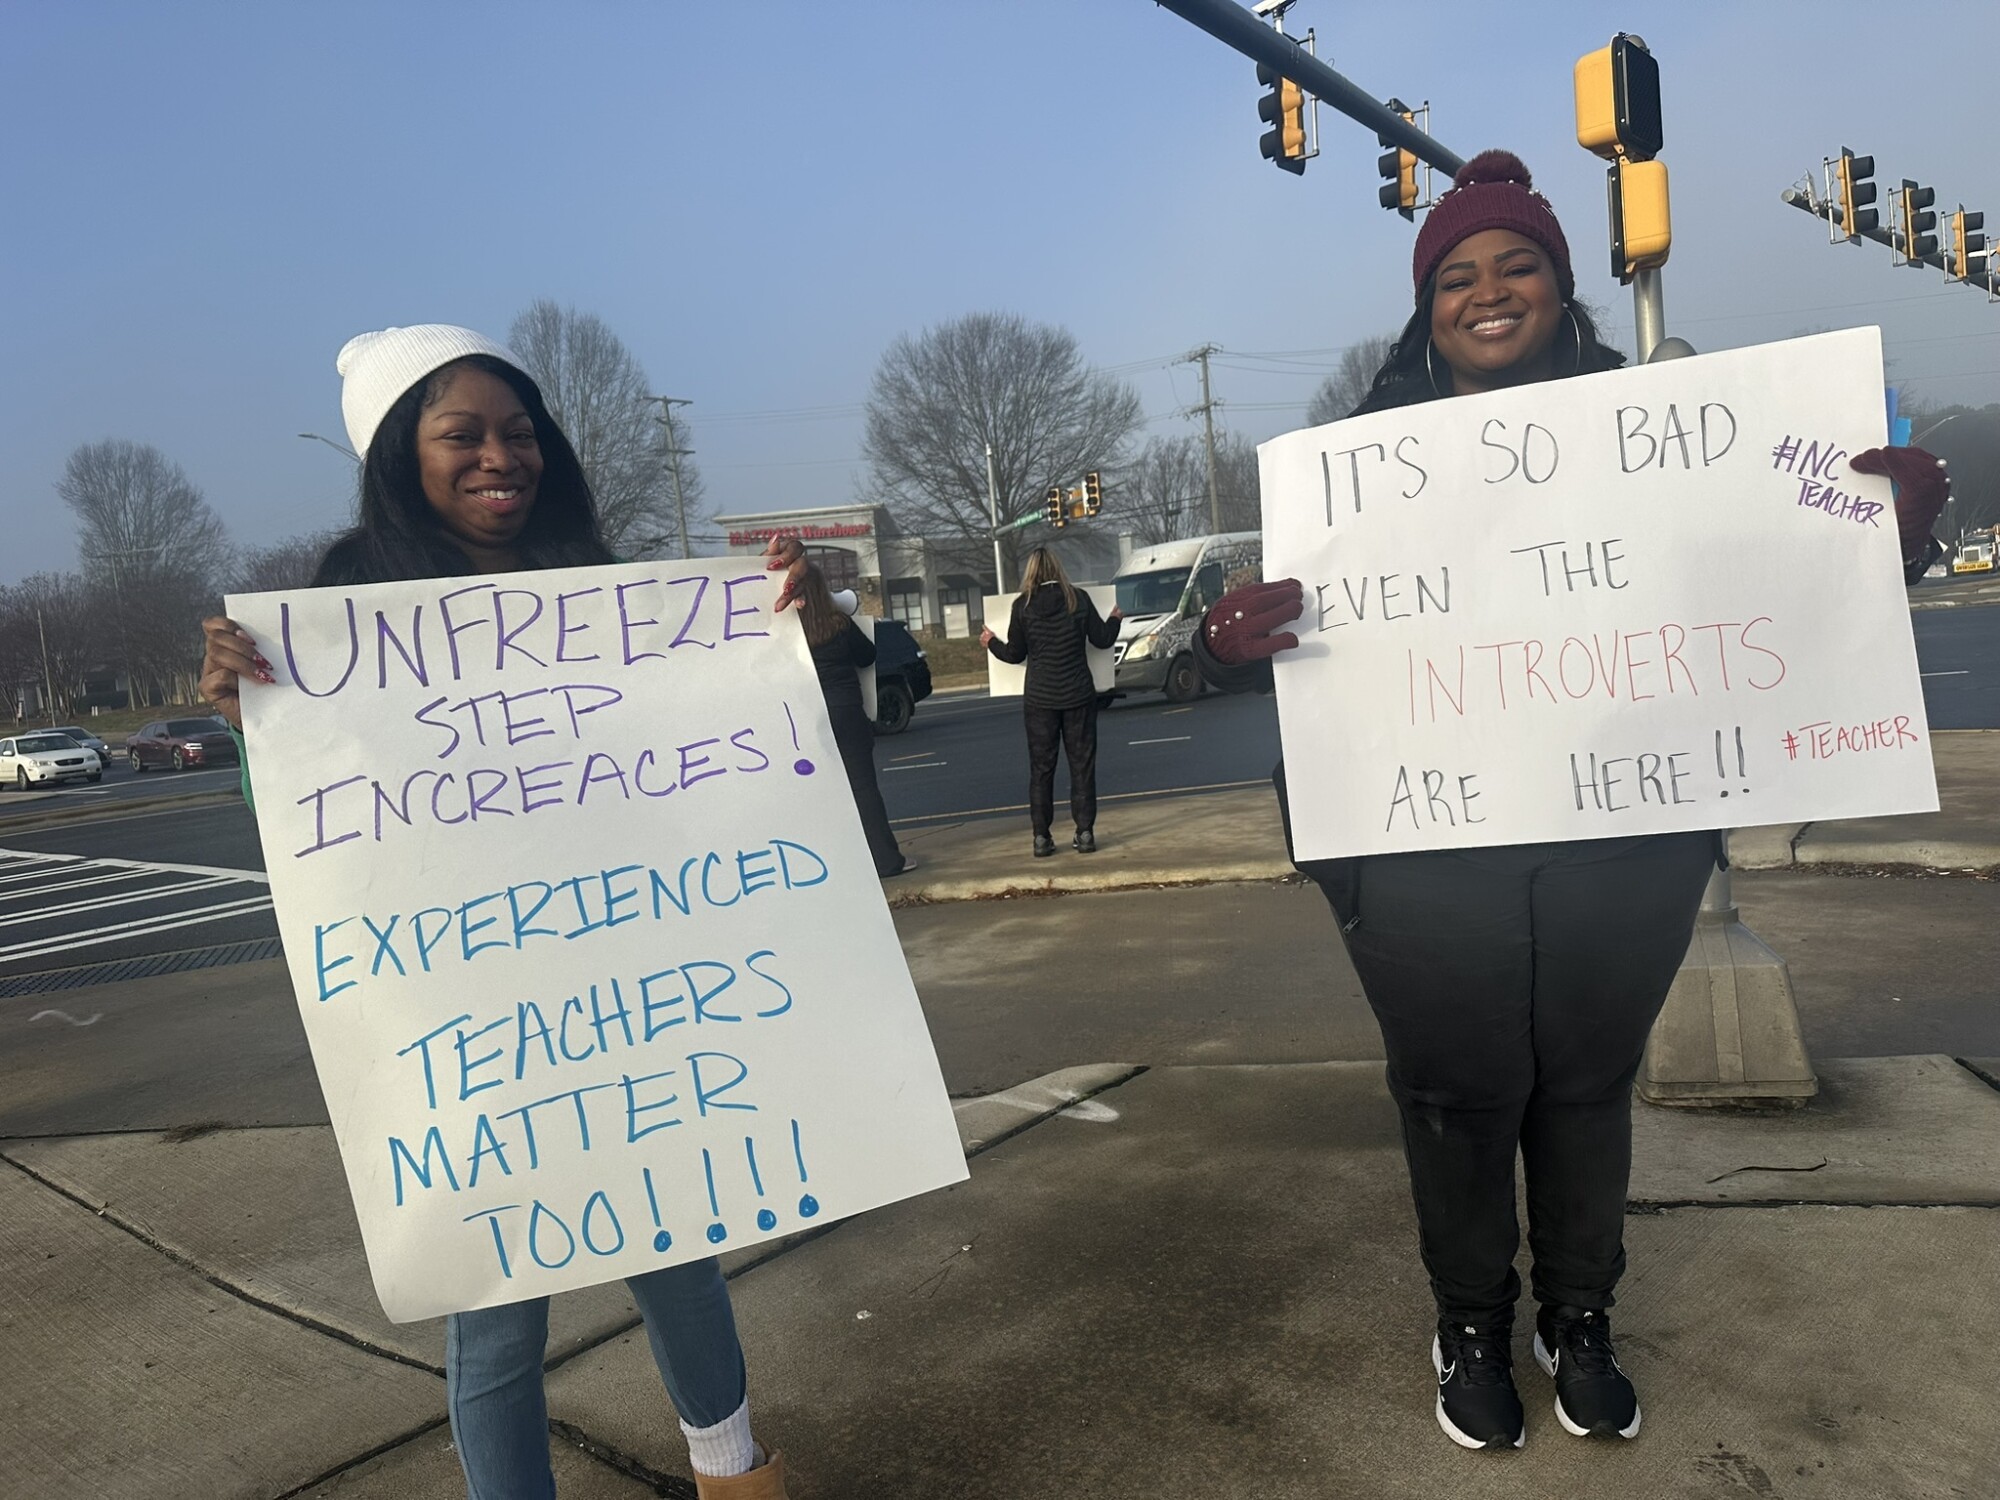 UNFREEZE
STEP
INCREACES!
EXPERIENCED
TEACHERS
MATTER
TOO!!!!
IT'S SO BAD
#NC
TEACHER
EVEN THE
INTROVERTS
ARE HERE!!
#TEACHER
MATTRESS Warehouse